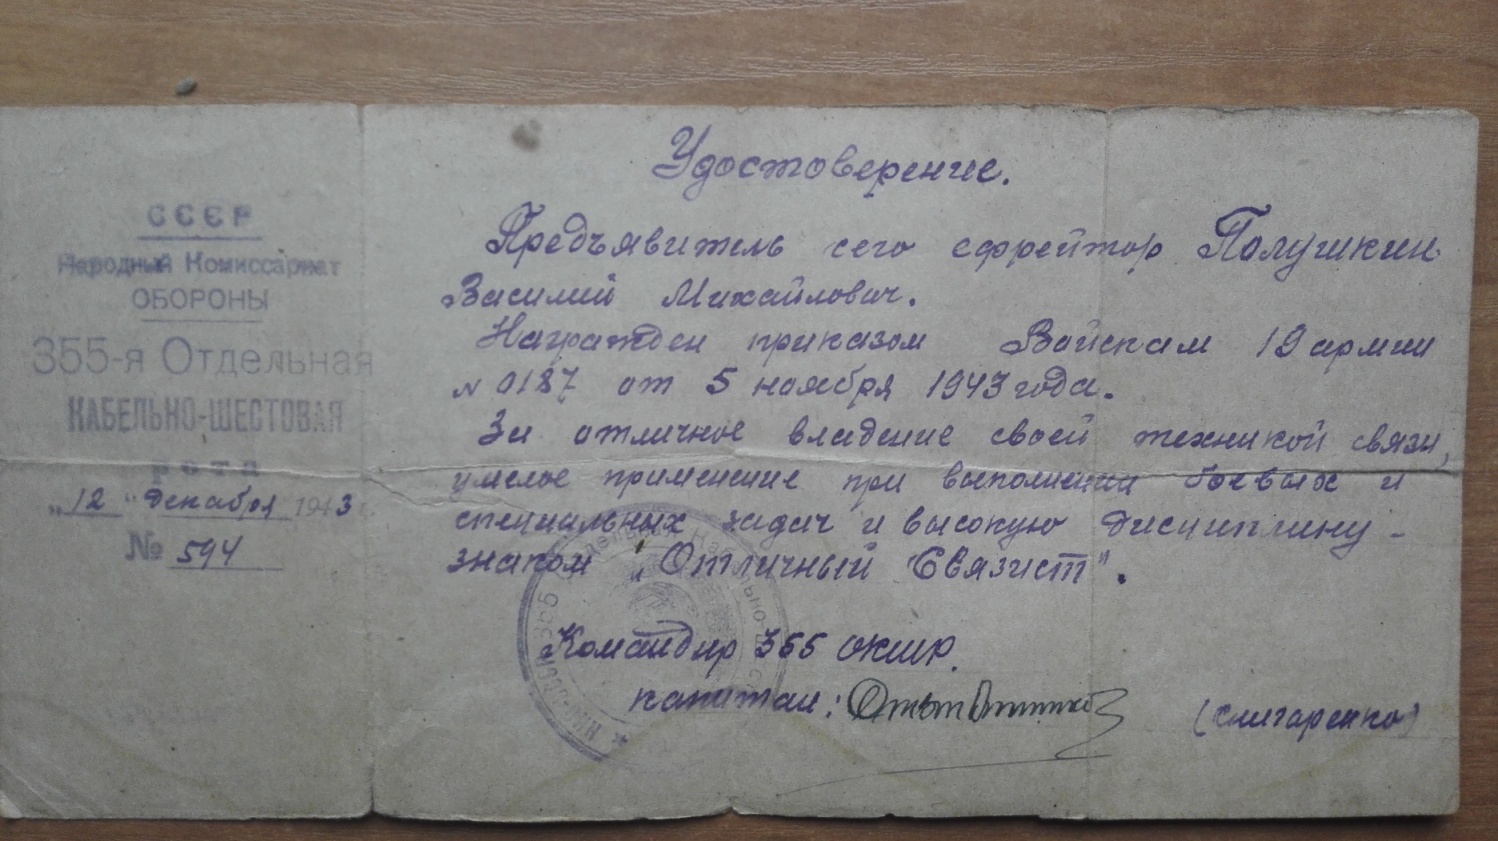 СССР
Народный Комиссариат
ОБОРОНЫ
355-я Отдельная
КАБЕЛЬНО-ШЕСТОВАЯ
рота
„12" декабря 1943
№ 594
Удостоверение.
Предъявитель сего ефрейтор Полушкин
Василий Михайлович.
Награжден приказом Войскам 19 армии
N 0187 от 5 ноября 1943 года.
За отличное владение своей техникой связи,
умелое применение при выполнении боевых и
специальных задач и высокую дисциплину -
знаком „Отличный Связист".
Командир 355 окшр.
капитан:
(Слигаренко)